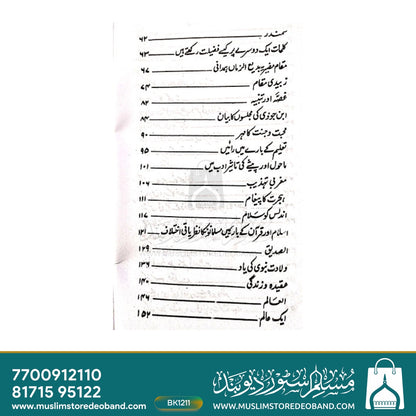 سمندر ۶۲
کلمات ایک دوسرے پر کیسے فضیلت رکھتے ہیں ۶۳
مقام مضیریہ بدیع الزماں ہمدانی ۶۷
زبیدی مقام ۷۴
غصّہ اور تنبیہ ۸۲
ابن جوزی کی مجلسوں کا بیان ۸۴
محبت و جنت کا مہر ۹۰
تعلیم کے بارے میں رائیں ۹۵
ماحول اور پیشے کی تاثیر ادب میں ۱۰۱
مغربی تہذیب ۱۰۶
ہجرت کا پیغام ۱۱۱
اندلس کو سلام ۱۱۷
اسلام اور قرآن کے بارے میں مسلمانوں کا نظریاتی اختلاف ۱۲۱
الصدیق ۱۲۹
ولادت نبوی کی یاد ۱۳۶
عقیدہ و زندگی ۱۴۰
العالم ۱۴۶
ایک عالم ۱۵۲
7700912110
81715 95122
BK1211
مسلم اسٹور دیوبند
www.muslimstoredeoband.com
WWW.MUSLIMSTOREDEOBAND.COM